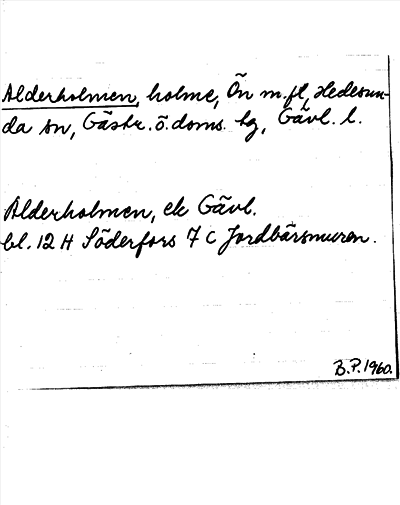 Alderholmen, holme, Ön m.fl, Hedesun-
da sn, Gästr. ö. doms. hg, Gävl. l.
Alderholmen, ek Gävl.
bl. 12 H Söderfors 7 C Jordbärsmuren.
B.P. 1960.